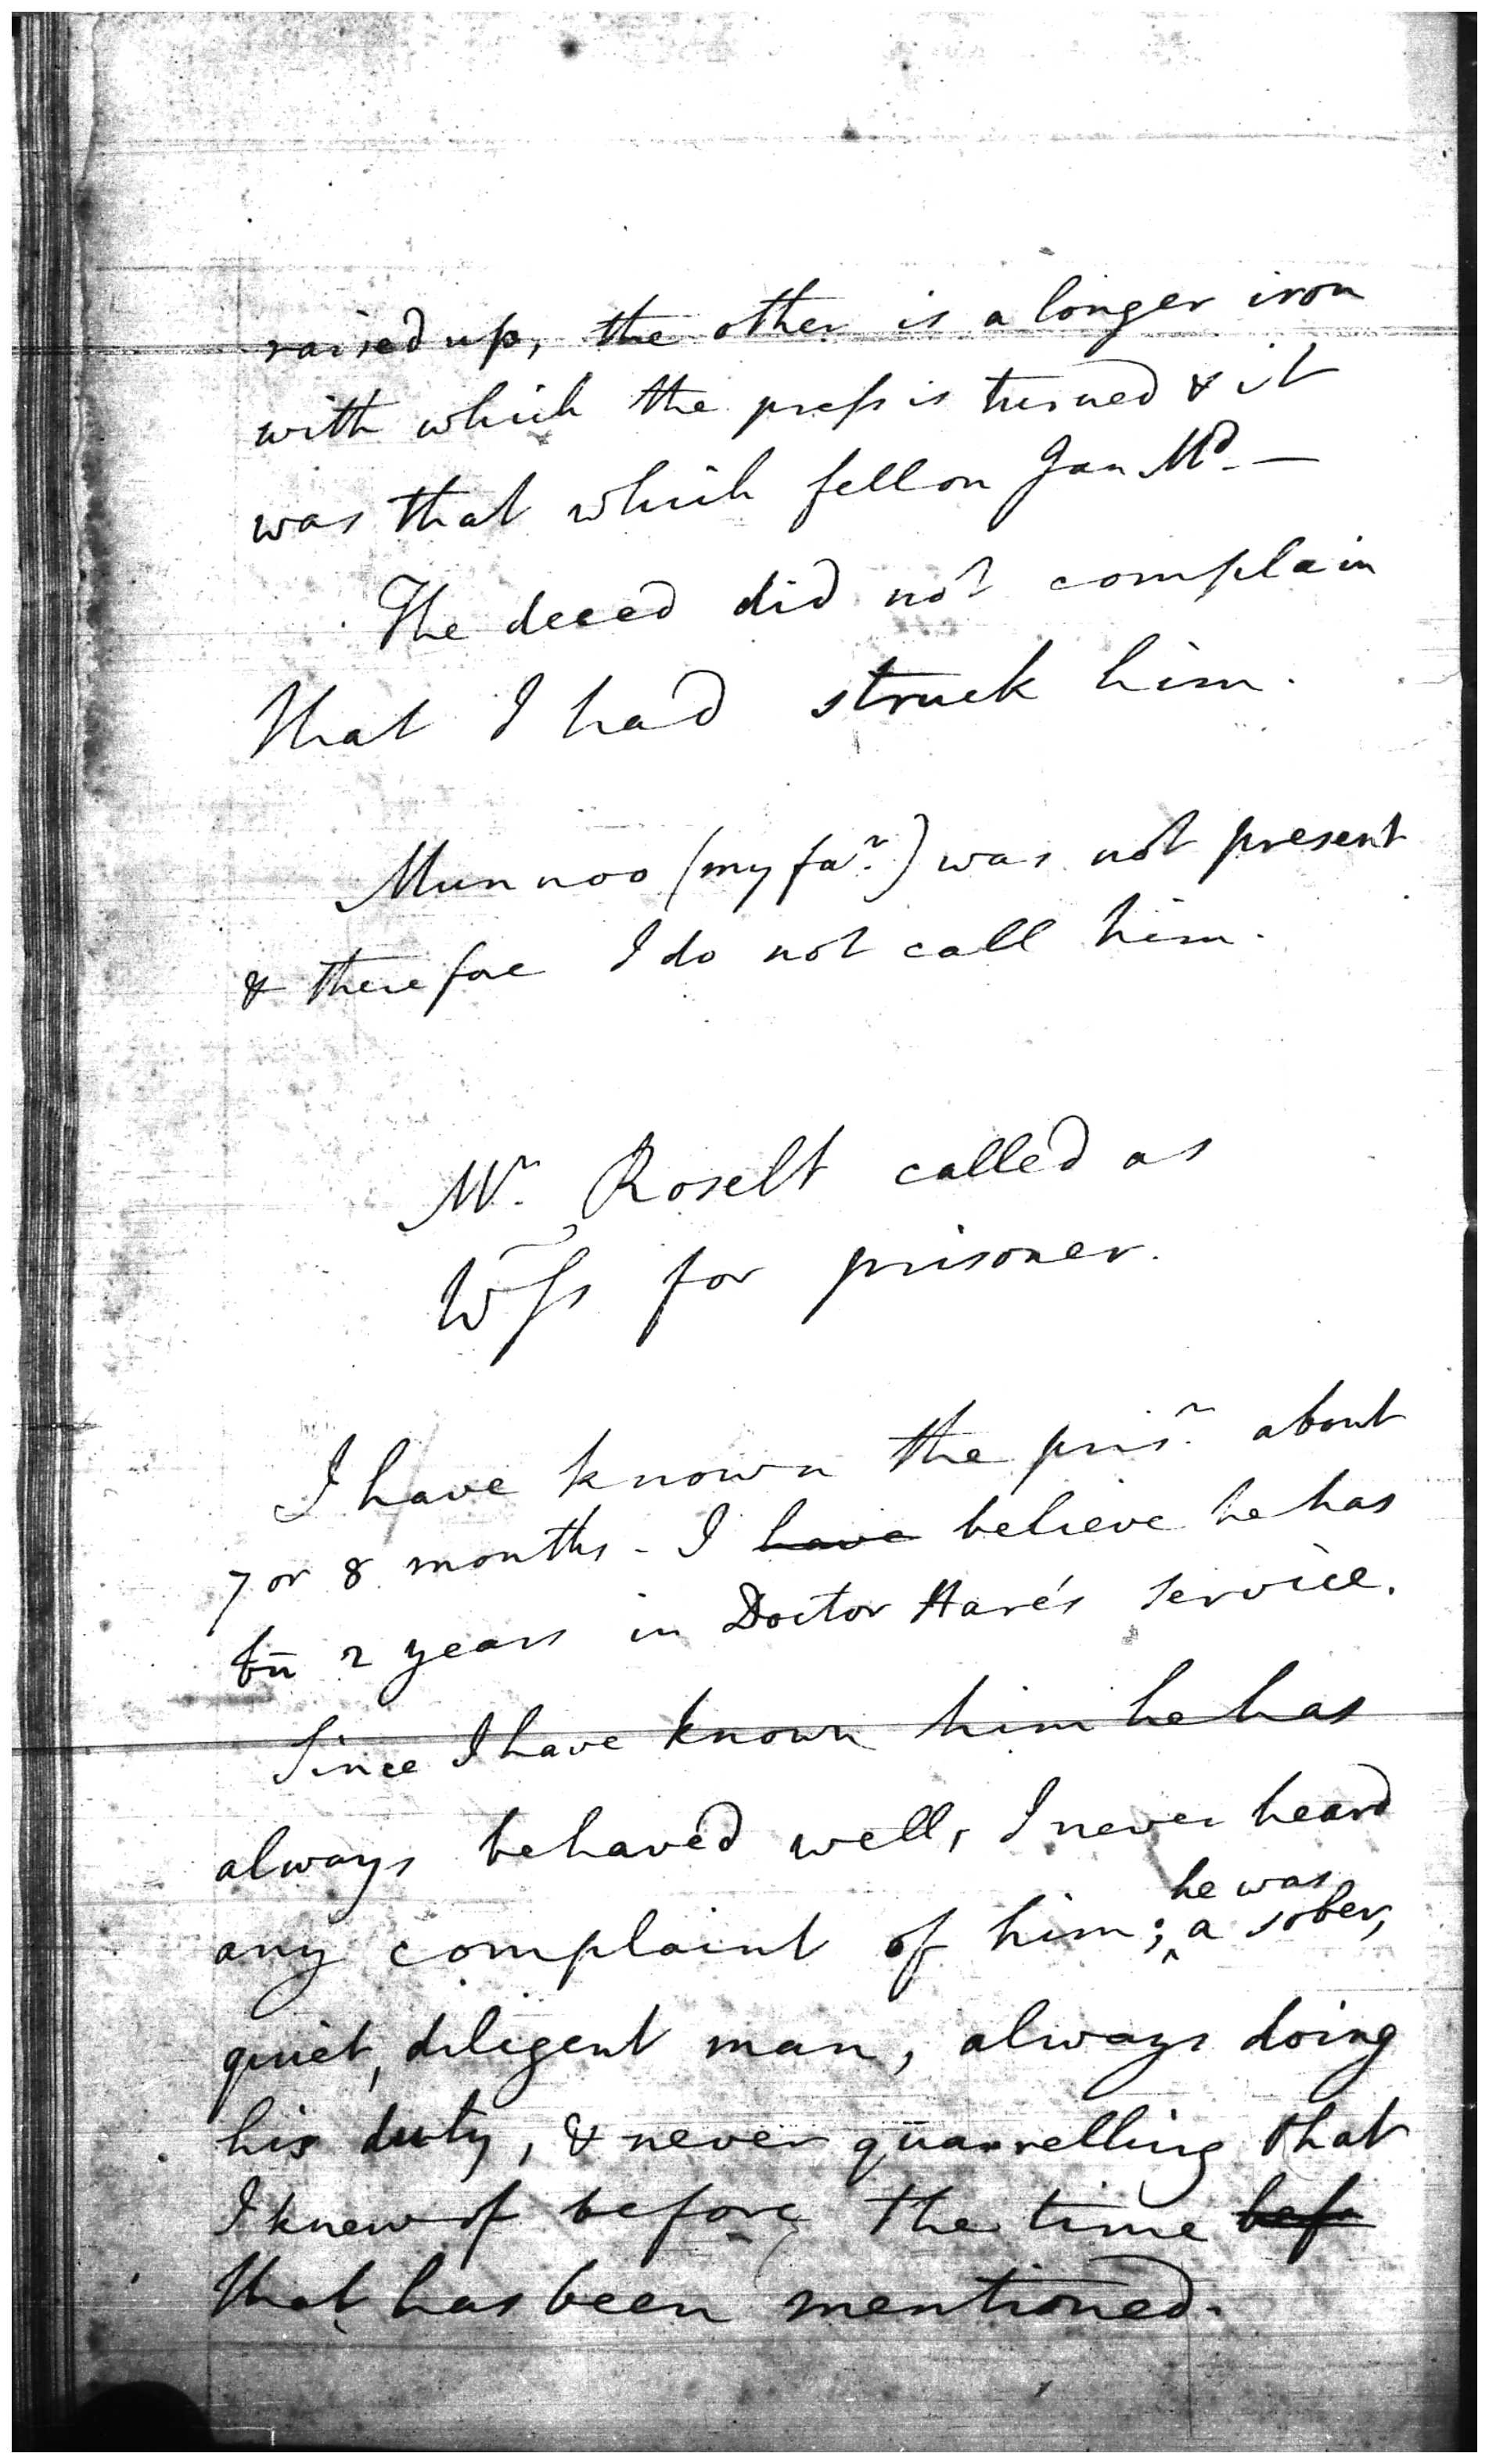 raised up, the other is a longer iron
with which the press is turned & it
was that which fell on Jan Md. —
The deced did not complain
that I had struck him.
Munnoo (my far.) was not present
& therefore I do not call him.
Mr. Roselt called as
Wss for prisoner.
I have known the prisr. about
7 or 8 months - I have believe he has
bn 2 years in Doctor Hare's service.
Since I have known him he has
always behaved well, I never heard
he was
any complaint of him; ^ a sober,
quiet, diligent man, always doing
his duty, & never quarrelling that
I knew of before the time bef
that has been mentioned.